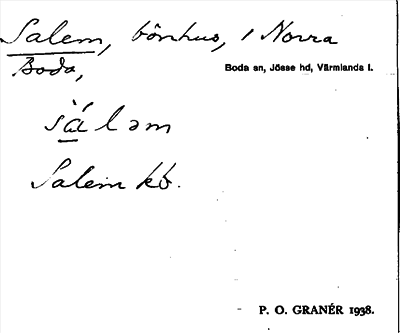 Salem, bönhus, i Norra
Boda,
Boda sn, Jösse hd, Värmlands l.
sáləm
Salem kb.
P. O. GRANÉR 1938.